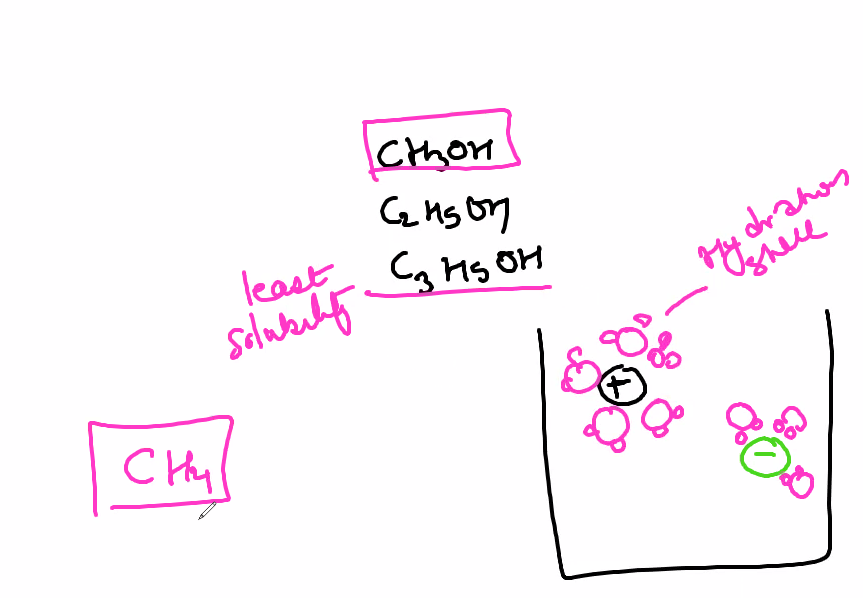 CH3OH
C2H5OH
C3H5OH
least
solubility
Hydration
shell
+
−
CH4